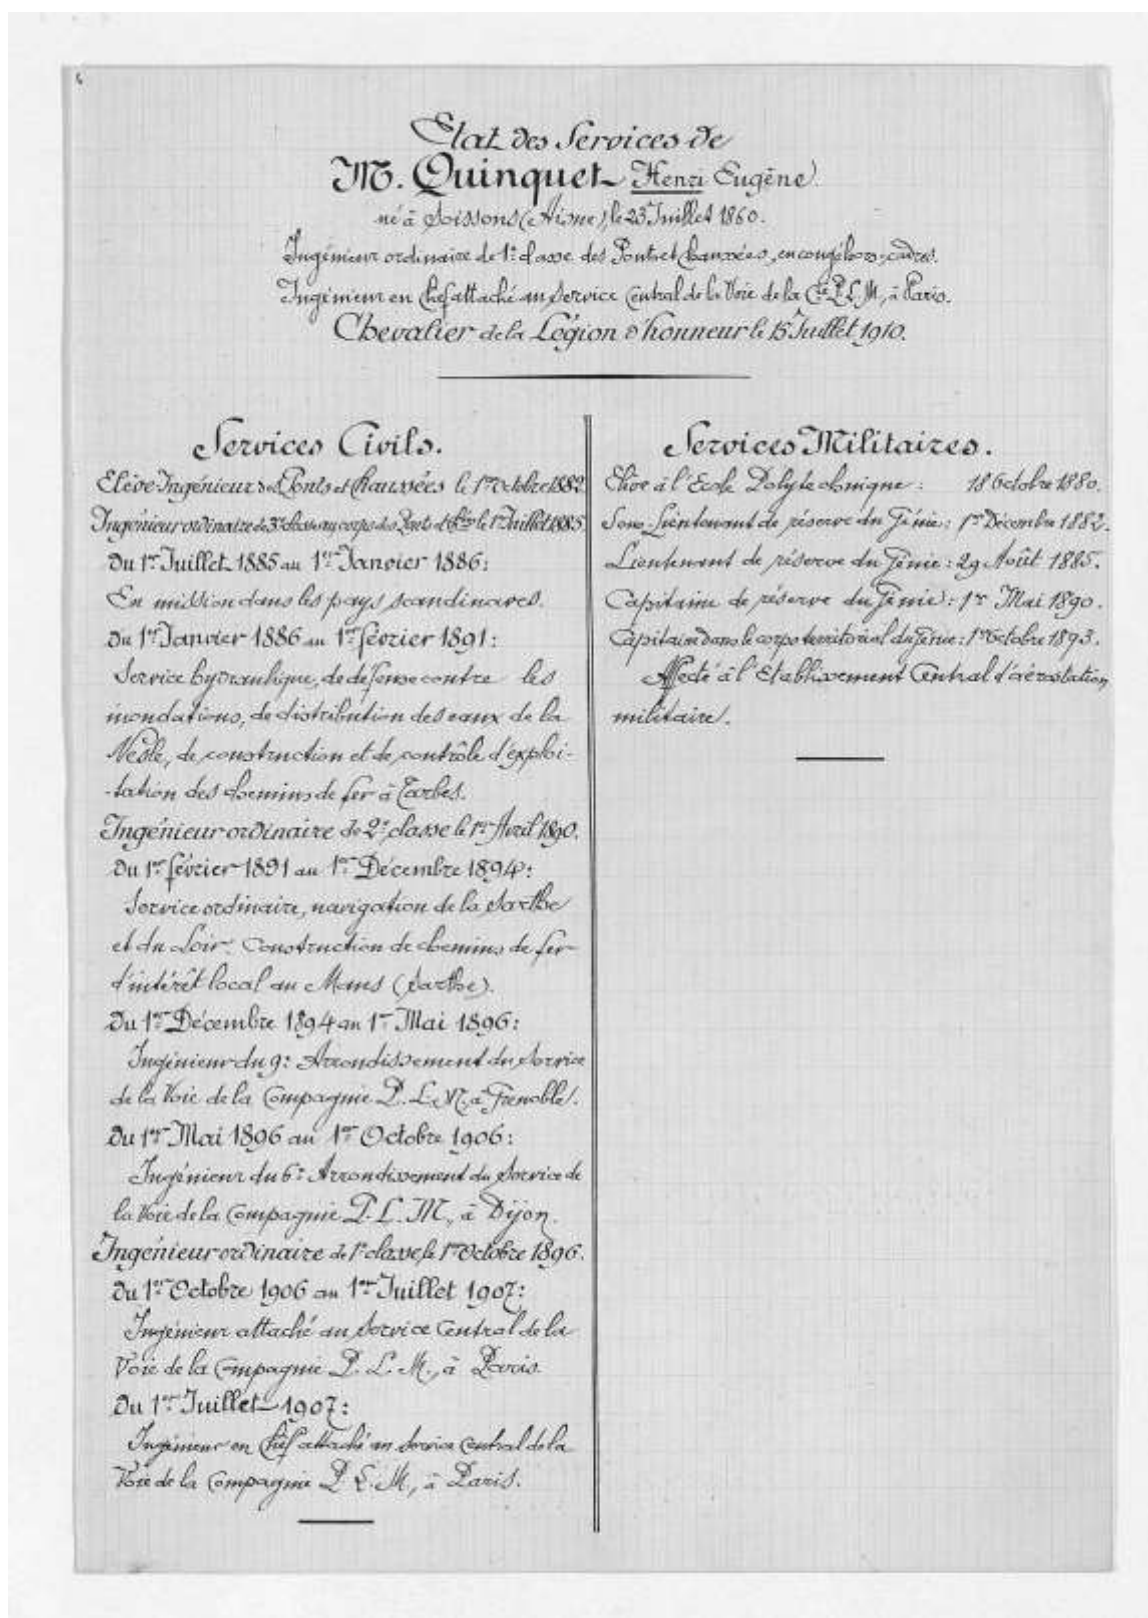 Etat des Services de
M. Quinquet Henri Eugène.
né à Soissons (Aisne), le 23 Juillet 1860.
Ingénieur ordinaire de 1e classe des Ponts et Chaussées, en congé hors cadres.
Ingénieur en Chef attaché au Service Central de la Voie de la Cie P.L.M., à Paris.
Chevalier de la Légion d'honneur le 15 Juillet 1910.
Services Civils.
Elève-Ingénieur des Ponts et Chaussées le 1er Octobre 1882
Ingénieur ordinaire de 3e classe au corps des Ponts et Chées le 1er Juillet 1885
Du 1er Juillet 1885 au 1er Janvier 1886:
En mission dans les pays scandinaves.
Du 1er Janvier 1886 au 1er février 1891:
Service hydraulique, de défense contre les
inondations, de distribution des eaux de la
Neste, de construction et de contrôle d'exploi-
-tation des chemins de fer à Tarbes.
Ingénieur ordinaire de 2e classe le 1er Avril 1890.
Du 1er février 1891 au 1er Décembre 1894:
Service ordinaire, navigation de la Sarthe
et du Loir. Construction de chemins de fer
d'intérêt local au Mans (Sarthe).
Du 1er Décembre 1894 au 1er Mai 1896:
Ingénieur du 9e Arrondissement du Service
de la Voie de la Compagnie P. L. M, à Grenoble.
Du 1er Mai 1896 au 1er Octobre 1906:
Ingénieur du 6e Arrondissement du Service de
la Voie de la Compagnie P. L. M, à Dijon.
Ingénieur ordinaire de 1e classe le 1er Octobre 1896.
Du 1er Octobre 1906 au 1er Juillet 1907:
Ingénieur attaché au Service Central de la
Voie de la Compagnie P. L. M., à Paris.
Du 1er Juillet 1907:
Ingénieur en Chef attaché au Service Central de la
Voie de la Compagnie P. L. M., à Paris.
Services Militaires.
Elève à l'Ecole Polytechnique: 18 Octobre 1880.
Sous-Lieutenant de réserve du Génie: 1er Décembre 1882.
Lieutenant de réserve du Génie: 29 Août 1885.
Capitaine de réserve du Génie: 1er Mai 1890.
Capitaine dans le corps territorial du Génie: 1er Octobre 1893.
Affecté à l'Etablissement Central d'aérostation
militaire.